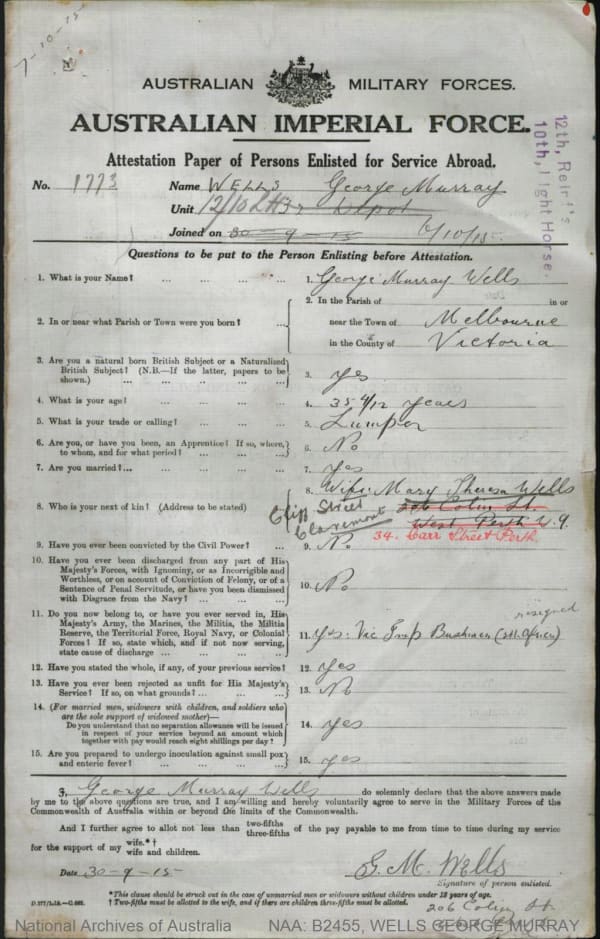 7-10-15
AUSTRALIAN MILITARY FORCES.
AUSTRALIAN IMPERIAL FORCE.
12th, Reinf's
10th, Light Horse.
Attestation Paper of Persons Enlisted for Service Abroad.
No. 1773 Name WELLS George Murray
Unit 12/10 LH Depot
Joined on 30-9-15 6/10/15
Questions to be put to the Person Enlisting before Attestation.
1. What is your Name? ... ... ... ... 1. George Murray Wells
2. In or near what Parish or Town were you born? ... 2. In the Parish of in or
near the Town of Melbourne
in the County of Victoria
3. Are you a natural born British Subject or a Naturalized
British Subject? (N.B.—If the latter, papers to be
shown.) ... ... ... ... 3. Yes
4. What is your age? ... ... ... ... 4. 35 4/12 years
5. What is your trade or calling? ... ... ... 5. Lumper
6. Are you, or have you been, an Apprentice? If so, where,
to whom, and for what period? ... ... ... 6. No
7. Are you married? ... ... ... ... 7. Yes
8. Who is your next of kin? (Address to be stated) 8. Wife: Mary Theresa Wells
206 Colin St.
West Perth W.A.
Street
Claremont
34. Carr Street Perth.
9. Have you ever been convicted by the Civil Power? ... 9. No
10. Have you ever been discharged from any part of His
Majesty's Forces, with Ignominy, or as Incorrigible and
Worthless, or on account of Conviction of Felony, or of a
Sentence of Penal Servitude, or have you been dismissed
with Disgrace from the Navy? ... ... ... 10. No
11. Do you now belong to, or have you ever served in, His
Majesty's Army, the Marines, the Militia, the Militia
Reserve, the Territorial Force, Royal Navy, or Colonial
Forces? If so, state which, and if not now serving,
state cause of discharge ... ... ... 11. Yes: Vic Imp Bushmen (Sth. Africa) resigned
12. Have you stated the whole, if any, of your previous service? 12. Yes
13. Have you ever been rejected as unfit for His Majesty's
Service? If so, on what grounds? ... ... ... 13. No
14. (For married men, widowers with children, and soldiers who
are the sole support of widowed mother)—
Do you understand that no separation allowance will be issued
in respect of your service beyond an amount which
together with pay would reach eight shillings per day? ... 14. Yes
15. Are you prepared to undergo inoculation against small pox
and enteric fever? ... ... ... ... 15. Yes
I, George Murray Wells do solemnly declare that the above answers made
by me to the above questions are true, and I am willing and hereby voluntarily agree to serve in the Military Forces of the
Commonwealth of Australia within or beyond the limits of the Commonwealth.
And I further agree to allot not less than two-fifths three-fifths of the pay payable to me from time to time during my service
for the support of my wife.*† wife and children.
Date 30-9-15- G. M. Wells
Signature of person enlisted.
*This clause should be struck out in the case of unmarried men or widowers without children under 18 years of age.
† Two-fifths must be allotted to the wife, and if there are children three-fifths must be allotted.
206 Colin St.
National Archives of Australia NAA: B2455, WELLS GEORGE MURRAY